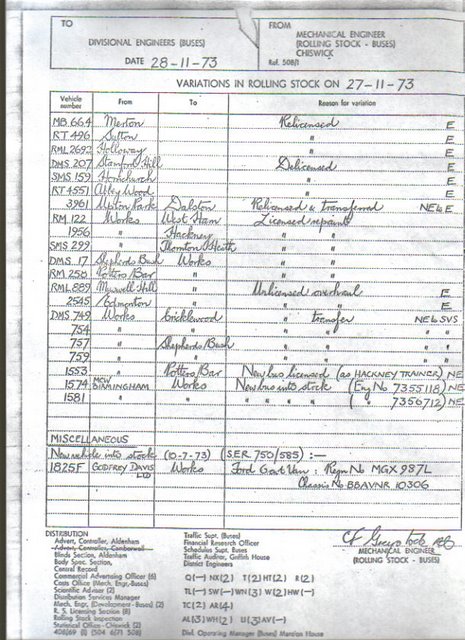 TO
DIVISIONAL ENGINEERS (BUSES)
DATE 28-11-73
FROM
MECHANICAL ENGINEER
(ROLLING STOCK - BUSES)
CHISWICK
Ref. 508/1
VARIATIONS IN ROLLING STOCK ON 27-11-73
Vehicle number From To Reason for variation
MB 664 Merton Relicensed E
RT 496 Sutton " E
RML 2692 Holloway " E
DMS 207 Stamford Hill Delicensed E
SMS 159 Hornchurch " E
RT 4551 Abbey Wood " E
3961 Upton Park Dalston Relicensed & transferred NE & E
RM 122 Works West Ham Licensed repaint
1956 " Hackney " "
SMS 299 " Thornton Heath " "
DMS 17 Shepherds Bush Works " "
RM 258 Potters Bar " " "
RML 889 Muswell Hill Unlicensed overhaul E
2545 Edmonton " " E
DMS 749 Works Cricklewood " transfer NE & SVS
754 " " " " " "
757 " Shepherds Bush " " " "
759 " " " " " "
1553 " Potters Bar New bus licensed (as HACKNEY TRAINER) NE
1574 MCW BIRMINGHAM Works New bus into stock (Eng No 7355118) NE
1581 " " " " " " ( " 7356712) NE
MISCELLANEOUS
New vehicle into stock (10-7-73) (S.E.R. 750/585) :—
1825F GODFREY DAVIS LTD Works Ford Cort Van : Regn No MGX 987L
Chassis No BBAVNR 10306
MECHANICAL ENGINEER
(ROLLING STOCK - BUSES)
DISTRIBUTION
Advert. Controller, Aldenham
Advert. Controller, Camberwell
Blinds Section, Aldenham
Body Spec. Section,
Central Record
Commercial Advertising Officer (6)
Costs Office (Mech. Engr.-Buses)
Scientific Adviser (2)
Distribution Services Manager
Mech. Engr. (Development - Buses) (2)
R. S. Licensing Section (8)
Rolling Stock Inspection
Statistical Office - Chiswick (2)
Traffic Supt. (Buses)
Financial Research Officer
Schedules Supt. Buses
Traffic Auditor, Griffith House
District Engineers
Q(—) NX(2) T(2) HT(2) R(2)
TL(—) SW(—) WN(3) W(2) HW(—)
TC(2) AR(4)
AL(3) WH(2) U(3) AV(—)
Divl. Operating Manager (Buses) Mansion House